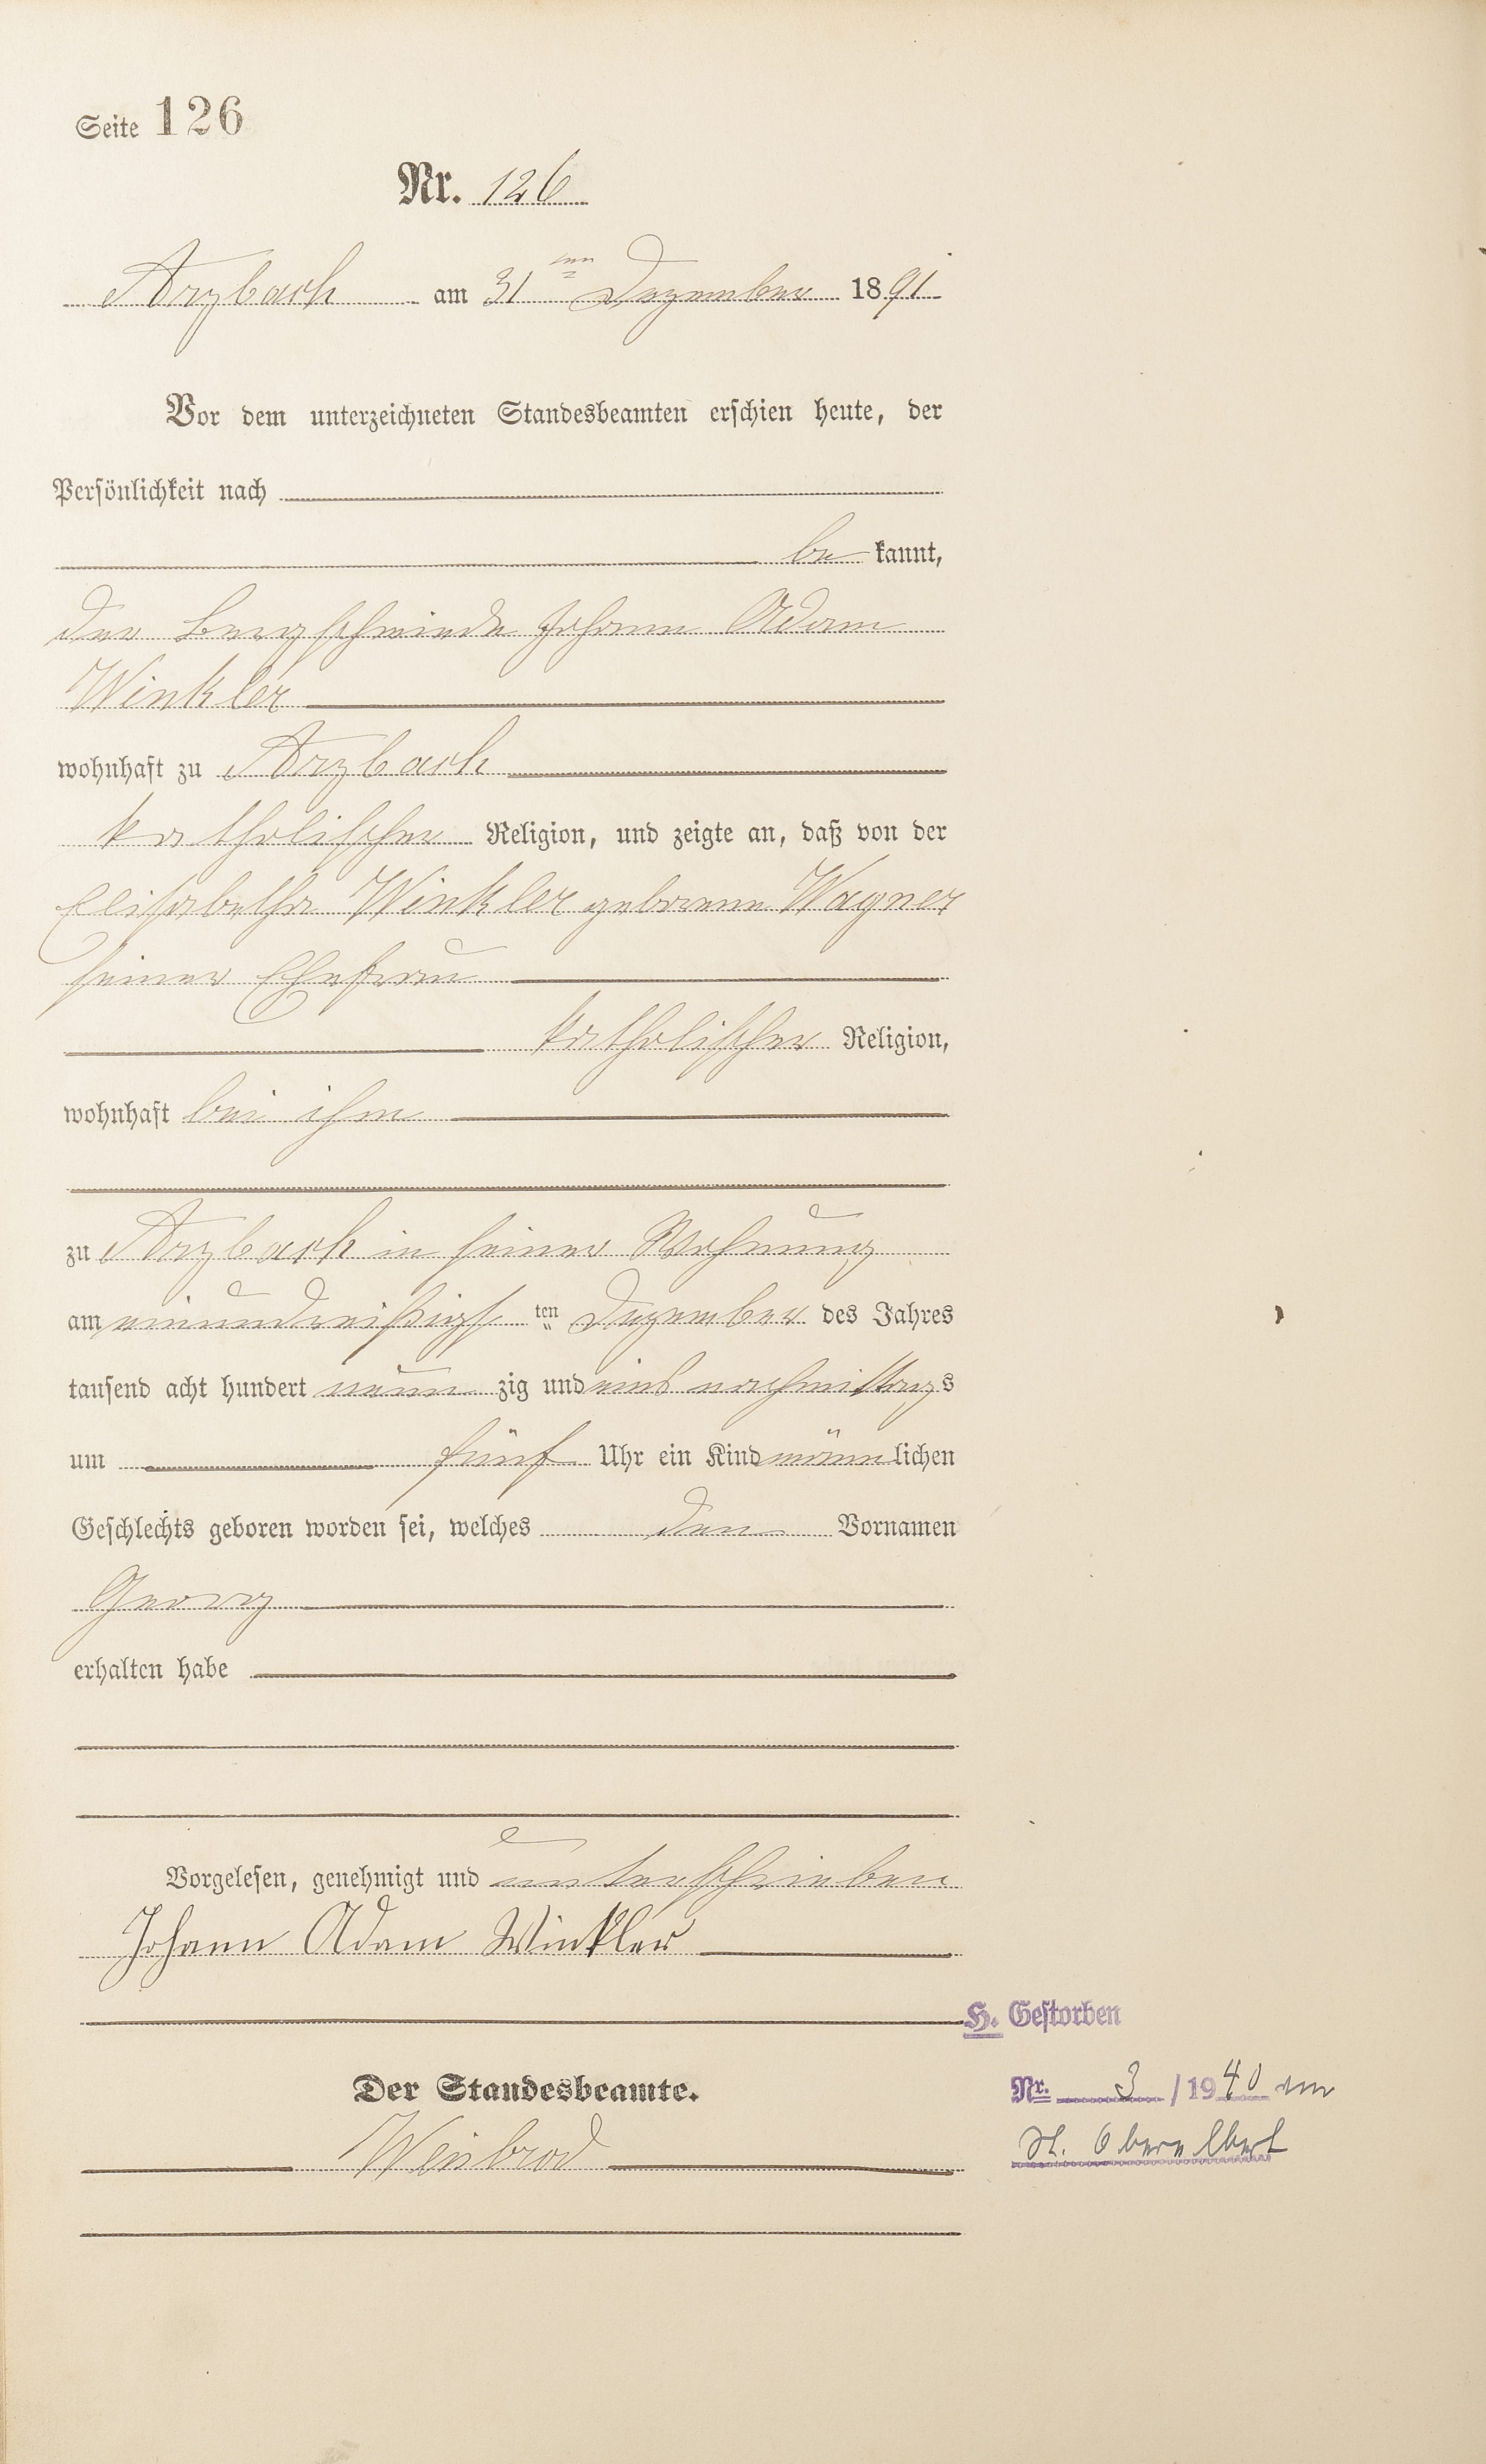 Seite 126
Nr. 126
Arzbach am 31ten Dezember 1891
Vor dem unterzeichneten Standesbeamten erschien heute, der
Persönlichkeit nach
be kannt,
der Bergschmiede Johann Adam
Winkler
wohnhaft zu Arzbach
katholischer Religion, und zeigte an, daß von der
Elisabetha Winkler geborene Wagner
seiner Ehefrau
katholischer Religion,
wohnhaft bei ihm
zu Arzbach in seiner Wohnung
am einundreißigs ten Dezember des Jahres
tausend acht hundert neun zig und eins nachmittags
um fünf Uhr ein Kind männlichen
Geschlechts geboren worden sei, welches den Vornamen
Georg
erhalten habe
Vorgelesen, genehmigt und unterschrieben
Johann Adam Winkler
H. Gestorben
Der Standesbeamte.
Nr. 3 / 1940
St. Oberelbert
Weinbrod